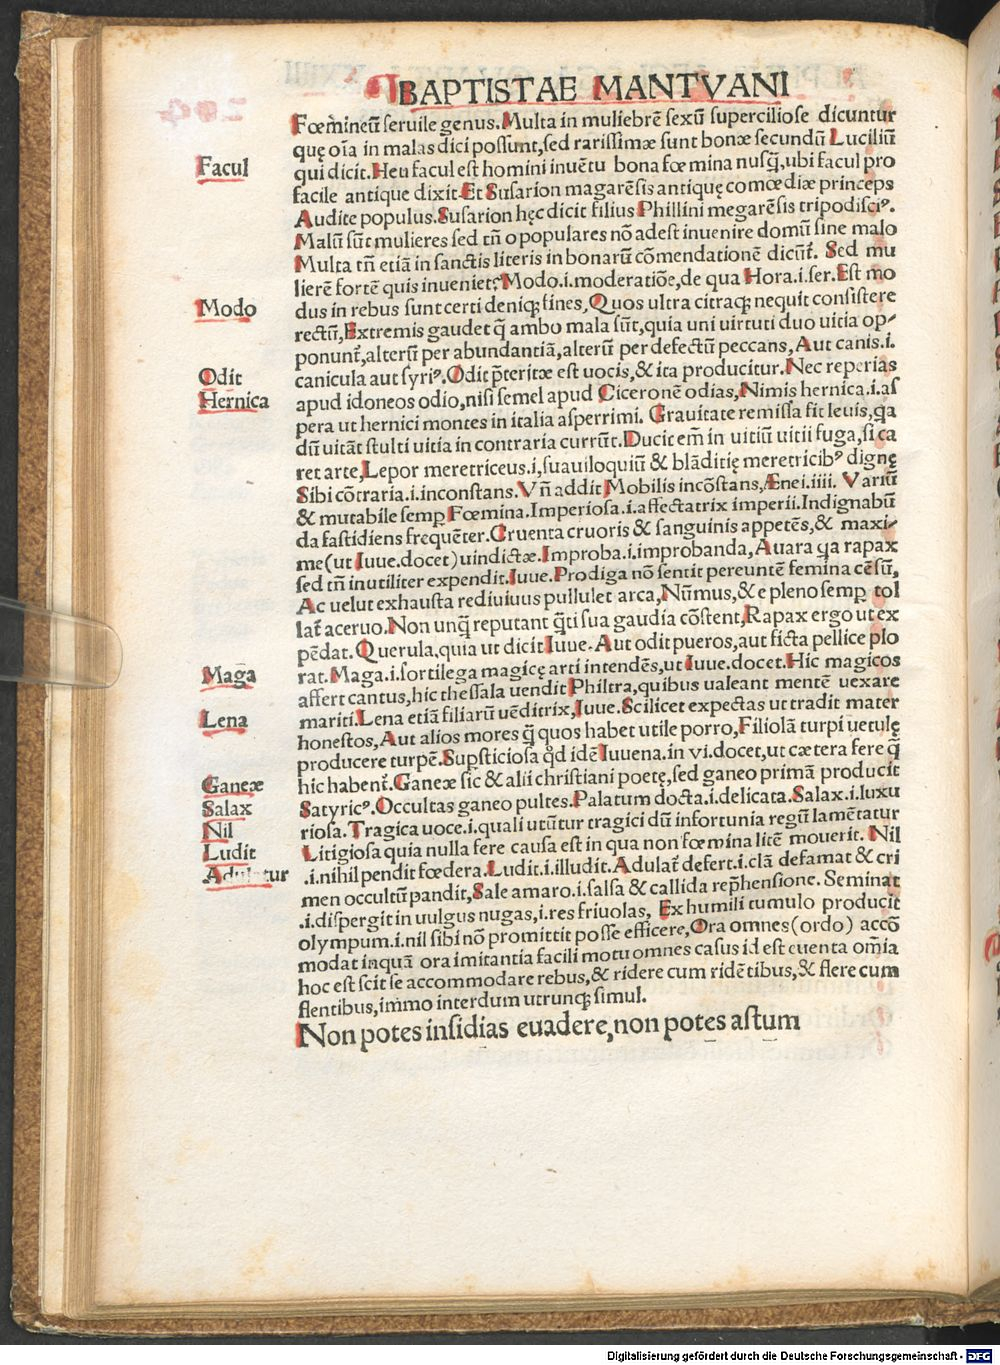 BAPTISTAE MANTVANI
Fœmineū seruile genus. Multa in muliebrē sexū superciliose dicuntur
quę oīa in malas dici possunt, sed rarissimæ sunt bonæ secundū Luciliū
Facul
qui dicit. Heu facul est homini inuētu bona fœmina nusq̃, ubi facul pro
facile antique dixit. Et Susarion magarēsis antiquę comœdiæ princeps
Audite populus. Susarion hęc dicit filius Phillini megarēsis tripodisciꝰ.
Malū sūt mulieres sed tñ o populares nō adest inuenire domū sine malo
Multa tñ etiā in sanctis literis in bonarū cōmendationē dicūt̃. Sed mu
lierē fortē quis inueniet? Modo.i.moderatiōe, de qua Hora.i.ser. Est mo
Modo
dus in rebus sunt certi deniq; fines, Quos ultra citraq; nequit consistere
rectū, Extremis gaudet q̃ ambo mala sūt, quia uni uirtuti duo uitia op-
ponunt̃, alterū per abundantiā, alterū per defectū peccans, Aut canis.i.
Odit
canicula aut syriꝰ. Odit p̃teritæ est uocis, & ita producitur. Nec reperias
Hernica
apud idoneos odio, nisi semel apud Ciceronē odias, Nimis hernica.i.as
pera ut hernici montes in italia asperrimi. Grauitate remissa fit leuis, q̃a
dū uitāt stulti uitia in contraria currūt. Ducit em̃ in uitiū uitii fuga, si ca
ret arte, Lepor meretriceus.i, suauiloquiū & blāditię meretricibꝰ dignę
Sibi cōtraria.i.inconstans. Vñ addit Mobilis incōstans, Ænei.iiii. Variū
& mutabile semp Fœmina. Imperiosa.i.affectatrix imperii. Indignabū
da fastidiens frequēter. Cruenta cruoris & sanguinis appetēs, & maxi-
me (ut Iuue.docet) uindictæ. Improba.i.improbanda, Auara q̃a rapax
sed tñ inutiliter expendit. Iuue. Prodiga nō sentit pereuntē femina cēsū,
Ac uelut exhausta rediuiuus pullulet arca, Nūmus, & e pleno semp tol
lat̃ aceruo. Non unq̃ reputant q̃ti sua gaudia cōstent, Rapax ergo ut ex
pēdat. Querula, quia ut dicit Iuue. Aut odit pueros, aut ficta pellice plo
Maga
rat. Maga.i.sortilega magicę arti intendēs, ut Iuue.docet. Hic magicos
affert cantus, hic thessala uendit Philtra, quibus ualeant mentē uexare
Lena
mariti. Lena etiā filiarū uēditrix, Iuue. Scilicet expectas ut tradit mater
honestos, Aut alios mores q̃ quos habet utile porro, Filiolā turpi uetulę
producere turpē. Supsticiosa qd idē Iuuena.in vi.docet, ut cætera fere q̃
Ganeæ
hic habent̃. Ganeæ sic & alii christiani poetę, sed ganeo primā producit
Salax
Satyricꝰ. Occultas ganeo pultes. Palatum docta.i.delicata. Salax.i.luxu
Nil
riosa. Tragica uoce.i.quali utūtur tragici dū infortunia regū lamētatur
Ludit
Litigiosa quia nulla fere causa est in qua non fœmina litē mouerit. Nil
Adulatur
.i.nihil pendit fœdera. Ludit.i.illudit. Adulat̃ defert.i.clā defamat & cri
men occultū pandit, Sale amaro.i.salsa & callida rep̃hensione. Seminat
.i.dispergit in uulgus nugas, i.res friuolas, Ex humili tumulo producit
olympum.i.nil sibi nō promittit posse efficere, Ora omnes (ordo) accō
modat inquā ora imitantia facili motu omnes casus id est euenta om̃ia
hoc est scit se accommodare rebus, & ridere cum ridētibus, & flere cum
flentibus, immo interdum utrunq; simul.
Non potes insidias euadere, non potes astum
Digitalisierung gefördert durch die Deutsche Forschungsgemeinschaft - DFG